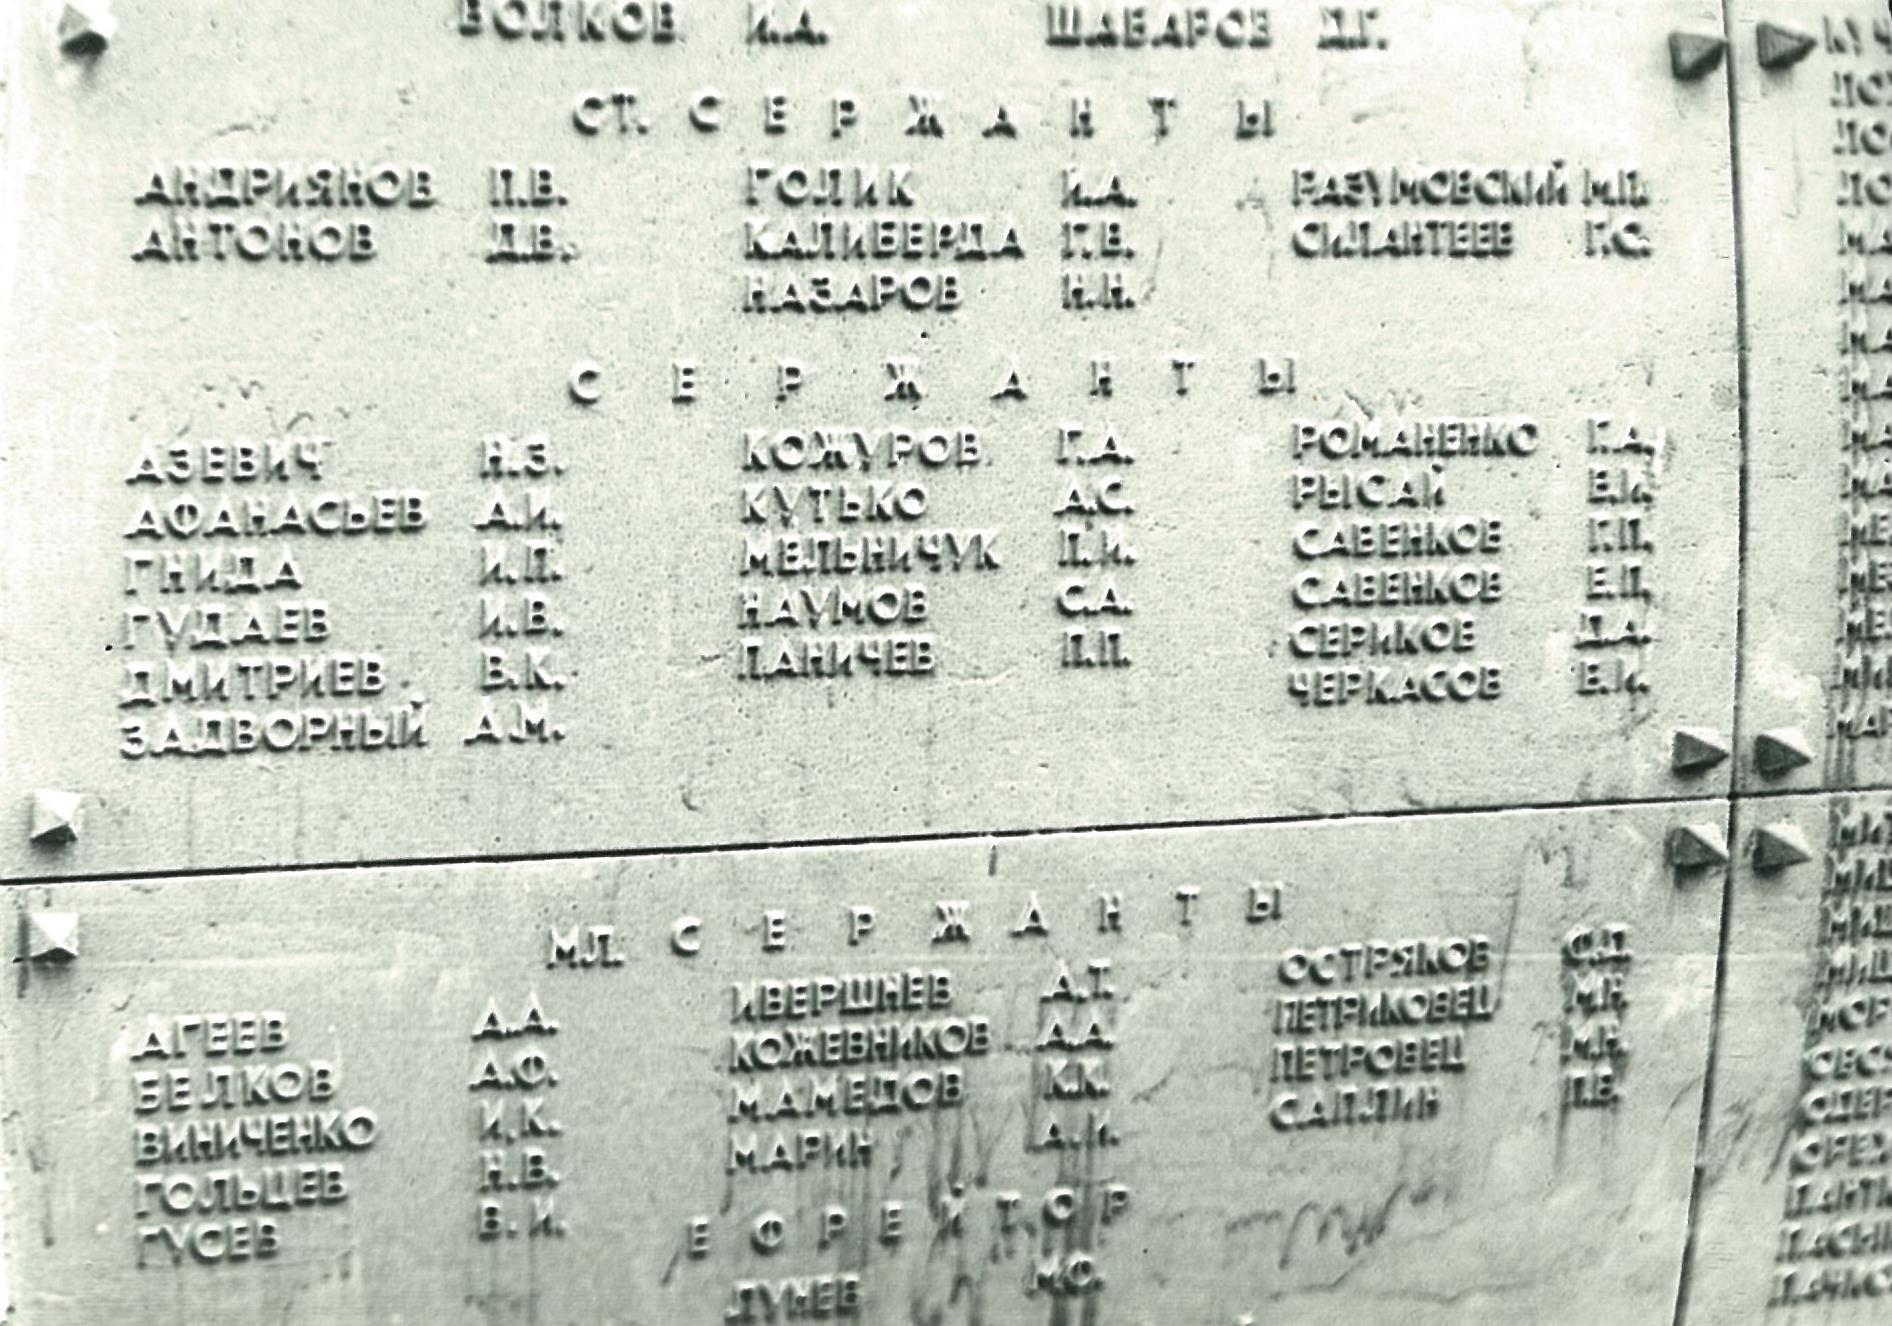 ВОЛКОВ И.А. ШАБАРОВ Д.Г.
СТ. СЕРЖАНТЫ
АНДРИЯНОВ П.В. ГОЛИК И.А. РАЗУМОВСКИЙ М.П.
АНТОНОВ Д.В. КАЛИБЕРДА Г.В. СИЛАНТЕЕВ Г.С.
НАЗАРОВ Н.Н.
СЕРЖАНТЫ
АЗЕВИЧ Н.З. КОЖУРОВ Г.А. РОМАНЕНКО Г.А.
АФАНАСЬЕВ А.И. КУТЬКО А.С. РЫСАЙ В.И.
ГНИДА И.П. МЕЛЬНИЧУК П.И. САВЕНКОВ Г.П.
ГУДАЕВ И.В. НАУМОВ С.А. САВЕНКОВ Е.П.
ДМИТРИЕВ В.К. ПАНИЧЕВ П.П. СЕРИКОВ Д.А.
ЗАДВОРНЫЙ А.М. ЧЕРКАСОВ В.И.
МЛ. СЕРЖАНТЫ
АГЕЕВ А.А. ИВЕРШНЕВ А.Т. ОСТРЯКОВ С.Д.
БЕЛКОВ А.Ф. КОЖЕВНИКОВ А.А. ПЕТРИКОВЕЦ М.Н.
ВИНИЧЕНКО И.К. МАМЕДОВ К.К. ПЕТРОВЕЦ М.Н.
ГОЛЬЦЕВ Н.В. МАРИН А.И. САПЛИН П.В.
ГУСЕВ В.И.
ЕФРЕЙТОР
ЛУНЕВ М.Ф.